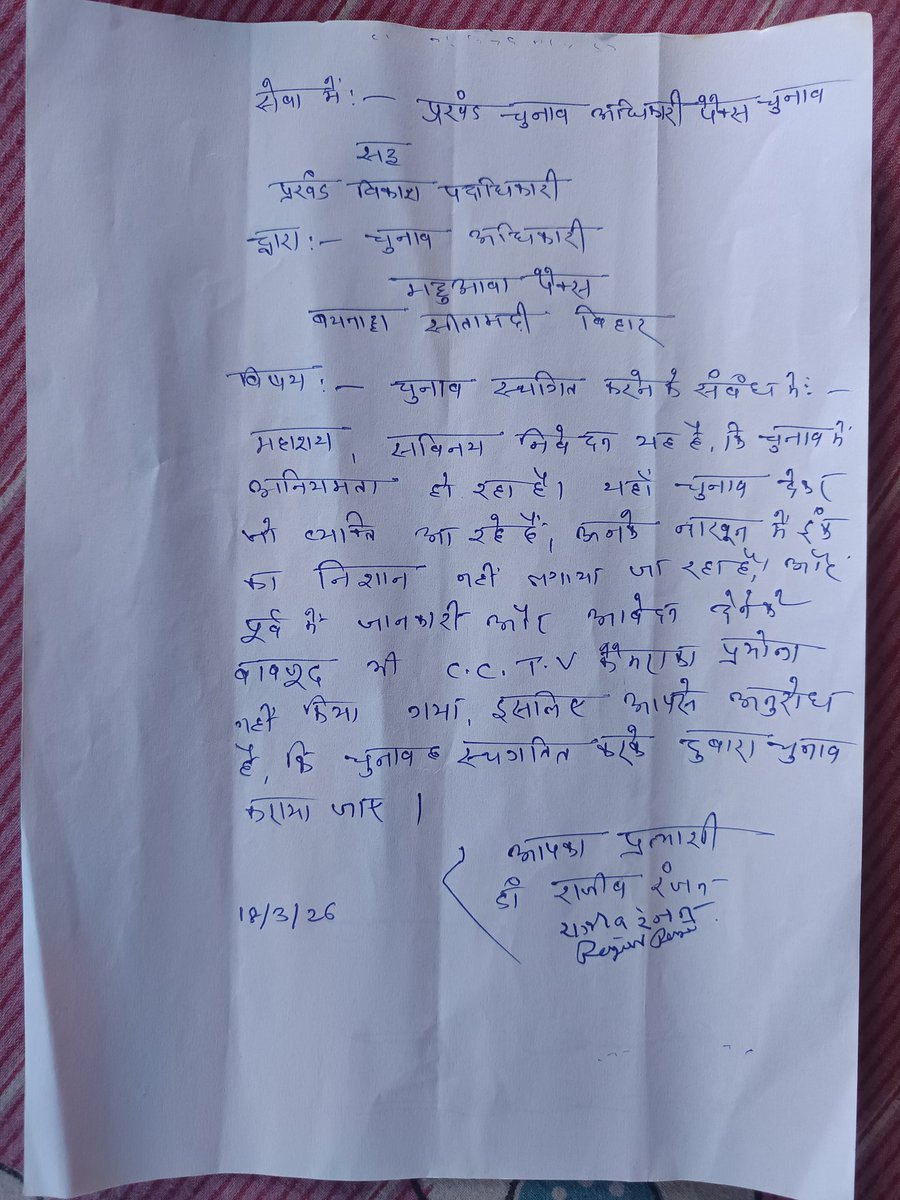 सेवा में:- प्रखंड चुनाव अधिकारी पैक्स चुनाव
सह
प्रखंड विकाश पदाधिकारी
द्वारा:- चुनाव अधिकारी
महुआवा पैक्स
बथनाहा सीतामढ़ी बिहार
विषय:- चुनाव स्थगित करने के संबंध में:-
महाशय, सविनय निवेदन यह है, कि चुनाव में
अनियमता हो रहा है। यहाँ चुनाव देकर
जो व्यक्ति आ रहे हैं, उनके नाखून में इंक
का निशान नहीं लगाया जा रहा है। और
पूर्व में जानकारी और आवेदन देने के
बावजूद भी C.C.T.V कैमरा का प्रयोग
नहीं किया गया, इसलिए आपसे अनुरोध
है, कि चुनाव स्थगतित करके दुबारा चुनाव
कराया जाए।
आपका प्रत्याशी
डॉ राजीव रंजन
राजीव रंजन
18/3/26